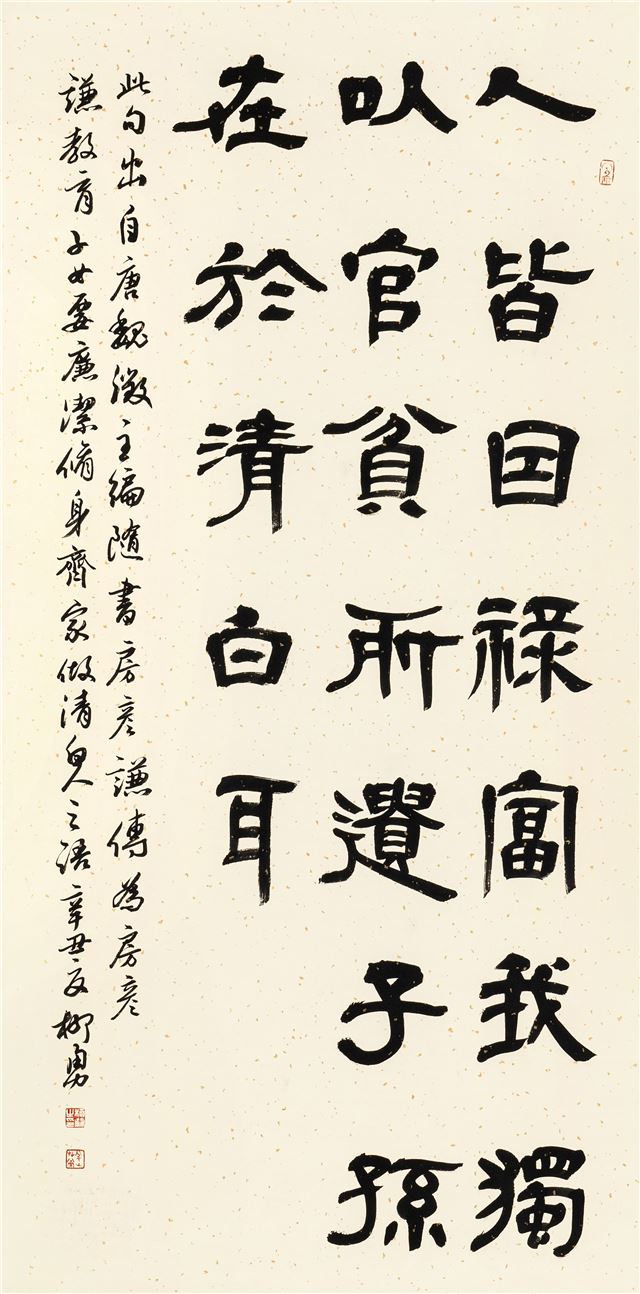 人皆因禄富我獨
以官貧所遺子孫
在於清白耳
此句出自唐魏徵主編隨書房彦謙傳為房彦
謙教育子女要廉潔脩身齊家做清白人之語辛丑夏柳勇